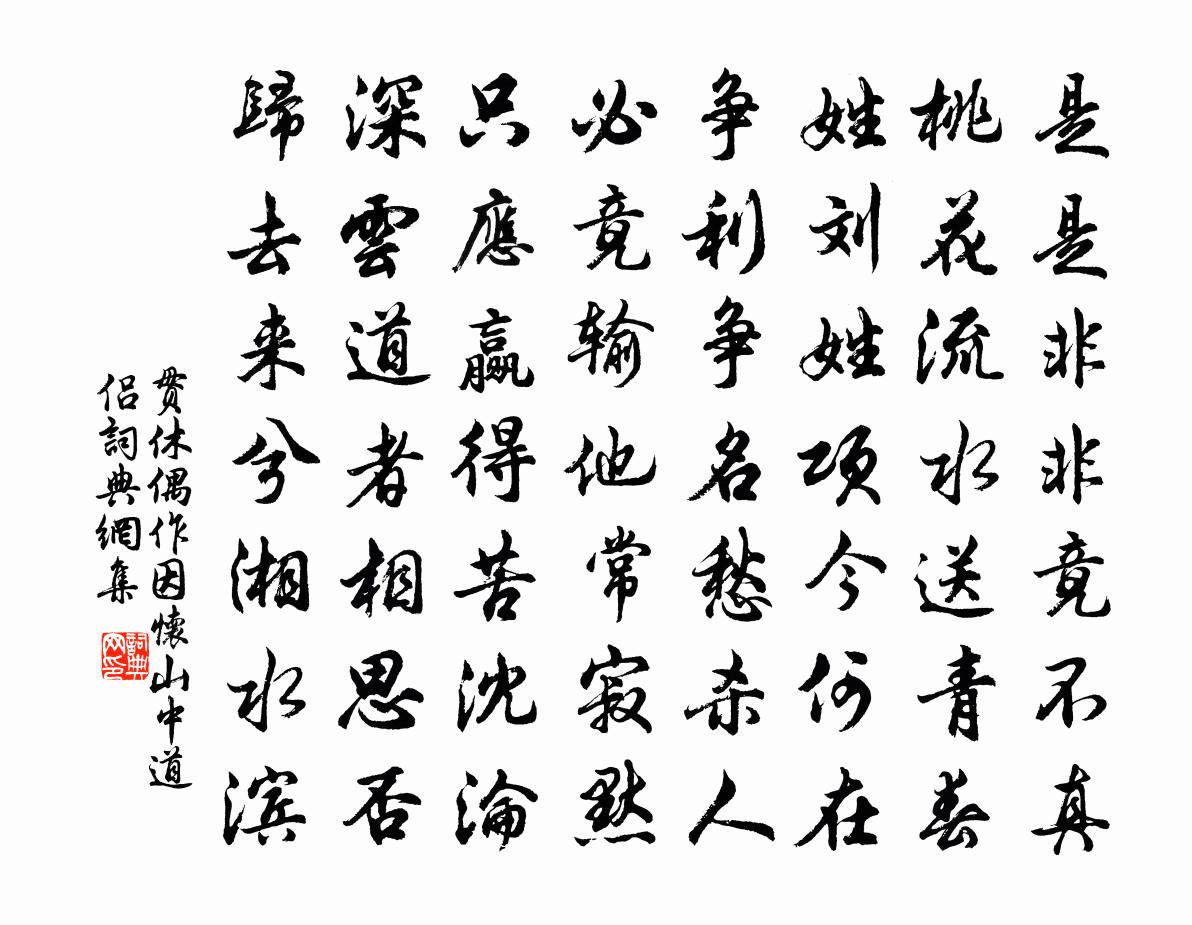 是是非非竟不真
桃花流水送青春
姓刘姓项今何在
争利争名愁杀人
必竟输他常寂默
只應贏得苦沈淪
深雲道者相思否
歸去来兮湘水滨
贯休偶作因懷山中道
侣詞典網集
詞典网印